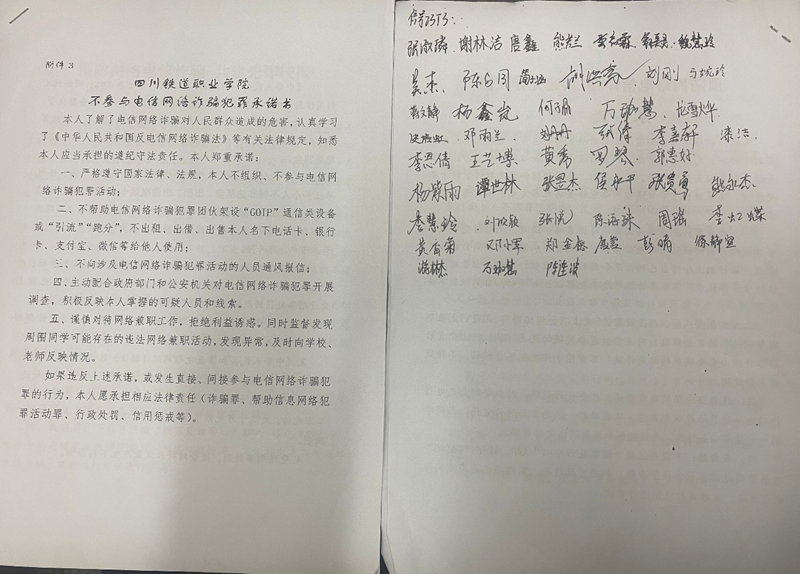 附件3
四川铁道职业学院
不参与电信网络诈骗犯罪承诺书
本人了解了电信网络诈骗对人民群众造成的危害，认真学习
了《中华人民共和国反电信网络诈骗法》等有关法律规定，知悉
本人应当承担的遵纪守法责任。本人郑重承诺：
一、严格遵守国家法律、法规，本人不组织、不参与电信网
络诈骗犯罪活动；
二、不帮助电信网络诈骗犯罪团伙架设“GOIP”通信类设备
或“引流”“跑分”，不出租、出借、出售本人名下电话卡、银行
卡、支付宝、微信等给他人使用；
三、不向涉及电信网络诈骗犯罪活动的人员通风报信；
四、主动配合政府部门和公安机关对电信网络诈骗犯罪开展
调查，积极反映本人掌握的可疑人员和线索。
五、谨慎对待网络兼职工作，拒绝利益诱惑。同时监督发现
周围同学可能存在的违法网络兼职活动，发现异常，及时向学校、
老师反映情况。
如果违反上述承诺，或发生直接、间接参与电信网络诈骗犯
罪的行为，本人愿承担相应法律责任（诈骗罪、帮助信息网络犯
罪活动罪、行政处罚、信用惩戒等）。
张淑琦 谢林洁 唐鑫 熊烂
吴杰 刘刚
杨鑫岚 何子朋 万珈慧
邓雨兰 李嘉轩 漆洁
李思倩 王艺博 黄秀 罗琴 郭惠好
杨紫雨 谭世林 张昱杰 侯永平 熊永杰
刘欣颖 张悦 陈海珠 周瑶
邓小军 郑金榕 彭晴 徐静宣
万珈慧